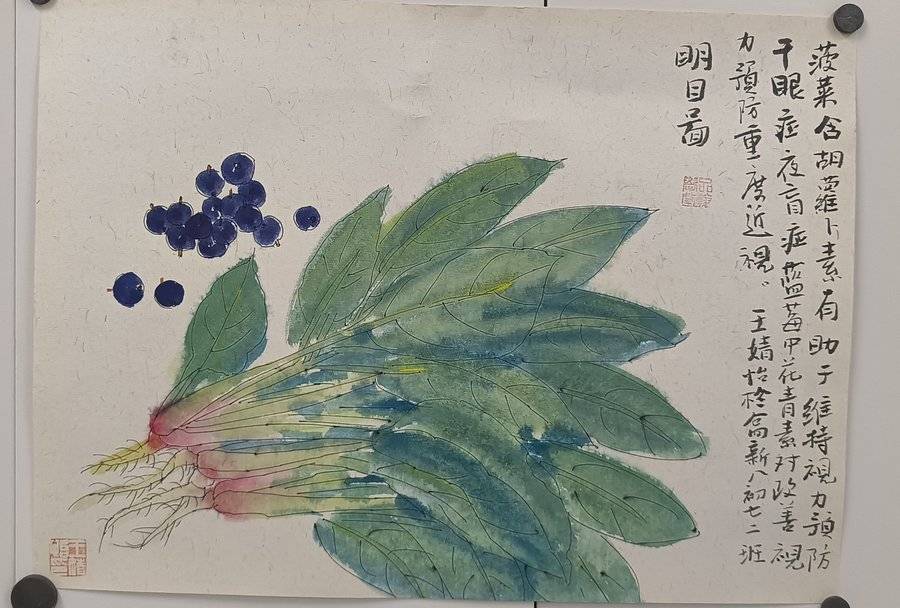 明目图
菠菜含胡蘿卜素有助于维持視力預防
干眼症夜盲症藍莓中花青素对改善視
力預防重度近視。王婧怡柊高新八初七二班